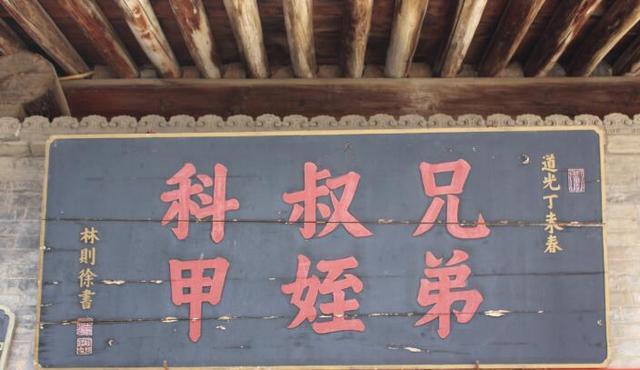 道光丁未春
兄弟
叔姪
科甲
林則徐書